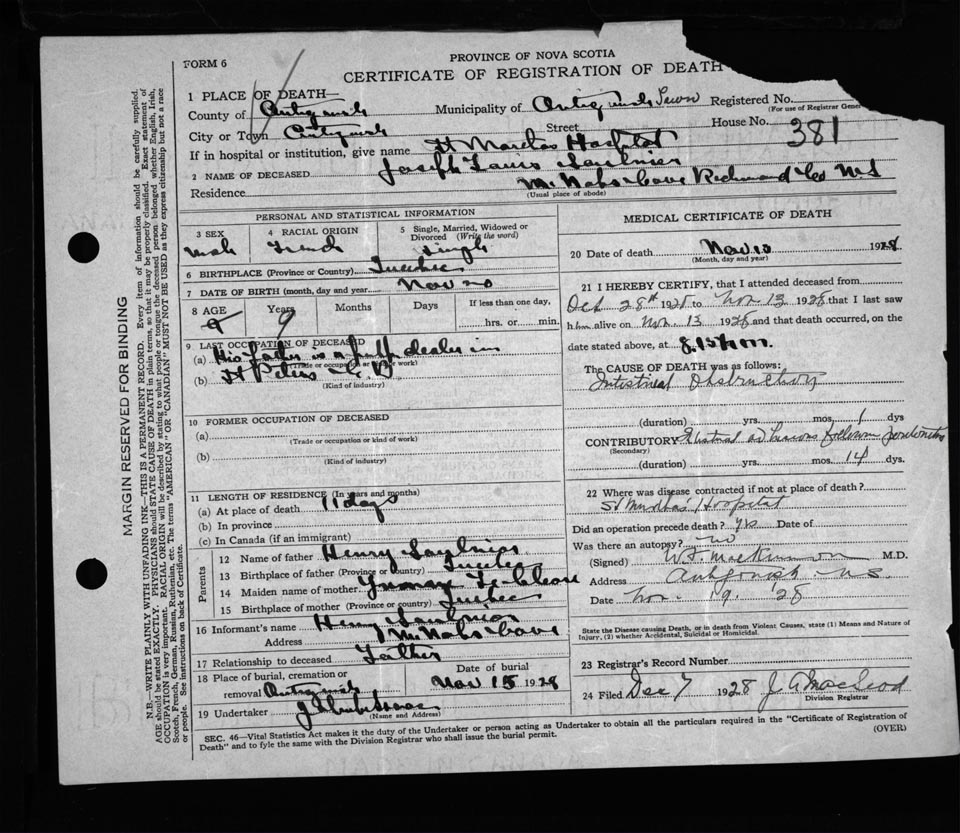 FORM 6
PROVINCE OF NOVA SCOTIA
CERTIFICATE OF REGISTRATION OF DEATH
1 PLACE OF DEATH—
County of Antigonish Municipality of Antigonish Town Registered No.
(For use of Registrar Gener
City or Town Antigonish Street House No. 381
If in hospital or institution, give name St Marthas Hospital
2 NAME OF DECEASED Joseph Louis Saulnier
Residence McNabs Cove Richmond Co N S
(Usual place of abode)
PERSONAL AND STATISTICAL INFORMATION
3 SEX
Male
4 RACIAL ORIGIN
French
5 Single, Married, Widowed or Divorced (Write the word)
Single
6 BIRTHPLACE (Province or Country) Quebec
7 DATE OF BIRTH (month, day and year) Nov 20
8 AGE Years Months Days If less than one day,
9 hrs. or min.
9 LAST OCCUPATION OF DECEASED
(a) His father is a dealer in
(Trade or occupation or kind of work)
(b) St Peters C. B
(Kind of industry)
10 FORMER OCCUPATION OF DECEASED
(a)
(Trade or occupation or kind of work)
(b)
(Kind of industry)
11 LENGTH OF RESIDENCE (In years and months)
(a) At place of death 11 days
(b) In province
(c) In Canada (if an immigrant)
Parents
12 Name of father Henry Saulnier
13 Birthplace of father (Province or country) Quebec
14 Maiden name of mother
15 Birthplace of mother (Province or country) Quebec
16 Informant's name Henry Saulnier
Address McNabs Cove
17 Relationship to deceased Father
18 Place of burial, cremation or removal Antigonish
Date of burial
Nov 15 1928
19 Undertaker
(Name and Address)
MEDICAL CERTIFICATE OF DEATH
20 Date of death Nov 1928
(Month, day and year)
21 I HEREBY CERTIFY, that I attended deceased from
Oct 28th 1928 to Nov. 13 1928 that I last saw
him alive on Nov. 13 1928 and that death occurred, on the
date stated above, at m.
The CAUSE OF DEATH was as follows:
Intestinal Obstruction
(duration) yrs. mos. 1 dys
CONTRIBUTORY
(Secondary)
(duration) yrs. mos. 14 dys.
22 Where was disease contracted if not at place of death?
St Marthas Hospital
Did an operation precede death? Yes Date of
Was there an autopsy? no
(Signed) W. F. MacKinnon M.D.
Address Antigonish N.S.
Date Nov. 19. '28
State the Disease causing Death, or in death from Violent Causes, state (1) Means and Nature of
Injury, (2) whether Accidental, Suicidal or Homicidal.
23 Registrar's Record Number
24 Filed Dec 7 1928 J A MacLeod
Division Registrar
SEC. 46—Vital Statistics Act makes it the duty of the Undertaker or person acting as Undertaker to obtain all the particulars required in the "Certificate of Registration of
Death" and to fyle the same with the Division Registrar who shall issue the burial permit.
(OVER)
MARGIN RESERVED FOR BINDING
N.B.—WRITE PLAINLY WITH UNFADING INK—THIS IS A PERMANENT RECORD. Every item of information should be carefully supplied.
AGE should be stated EXACTLY. PHYSICIANS should STATE CAUSE OF DEATH in plain terms, so that it may be properly classified. Exact statement of
OCCUPATION is very important. RACIAL ORIGIN will be described by stating to what people or tongue the deceased person belonged whether English, Irish,
Scotch, French, German, Russian, Ruthenian, etc. The terms "AMERICAN" OR "CANADIAN" MUST NOT BE USED as they express citizenship but not a race
or people. See instructions on back of Certificate.